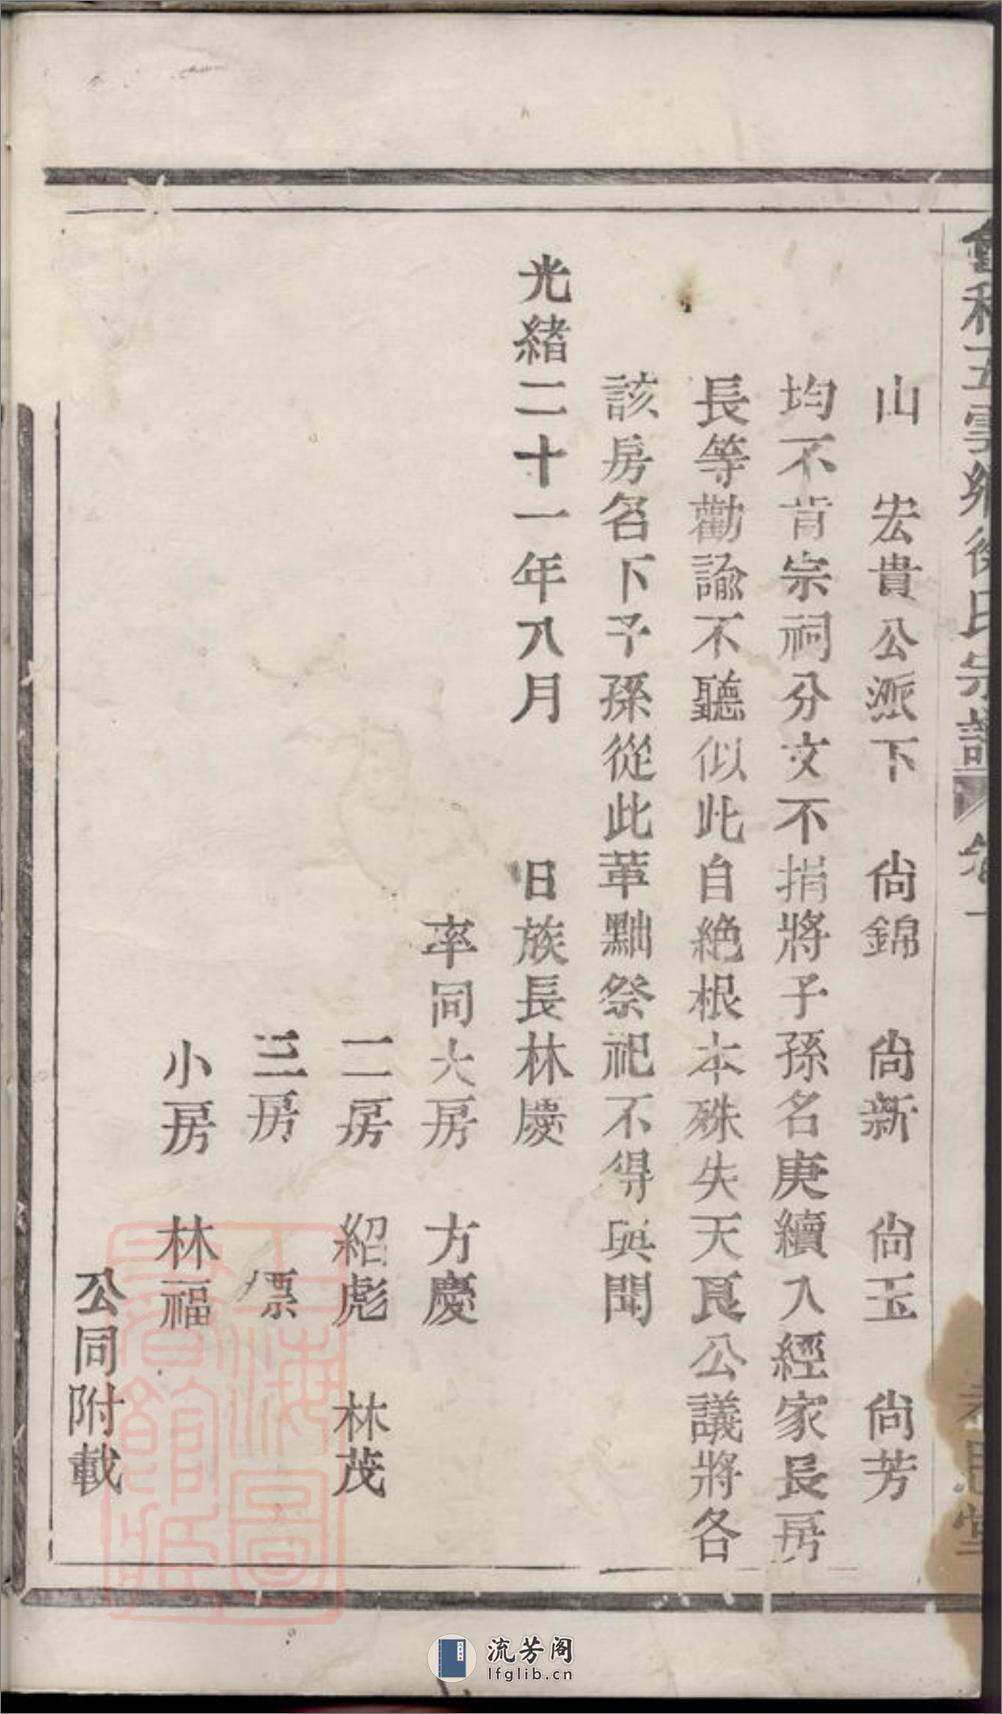 會稽五雲鄉徐氏宗譜 卷一
山 宏貴公派下 尙錦 尙新 尙玉 尙芳
均不肯宗祠分文不捐將子孫名庚續入經家長房
長等勸諭不聽似此自絶根本殊失天良公議將各
該房名下子孫從此革黜祭祀不得與聞
光緒二十一年八月 日族長林慶
率同大房 方慶
二房 紹彪 林茂
三房 標
小房 林福
公同附載
上海圖書館藏
流芳阁
lfglib.cn